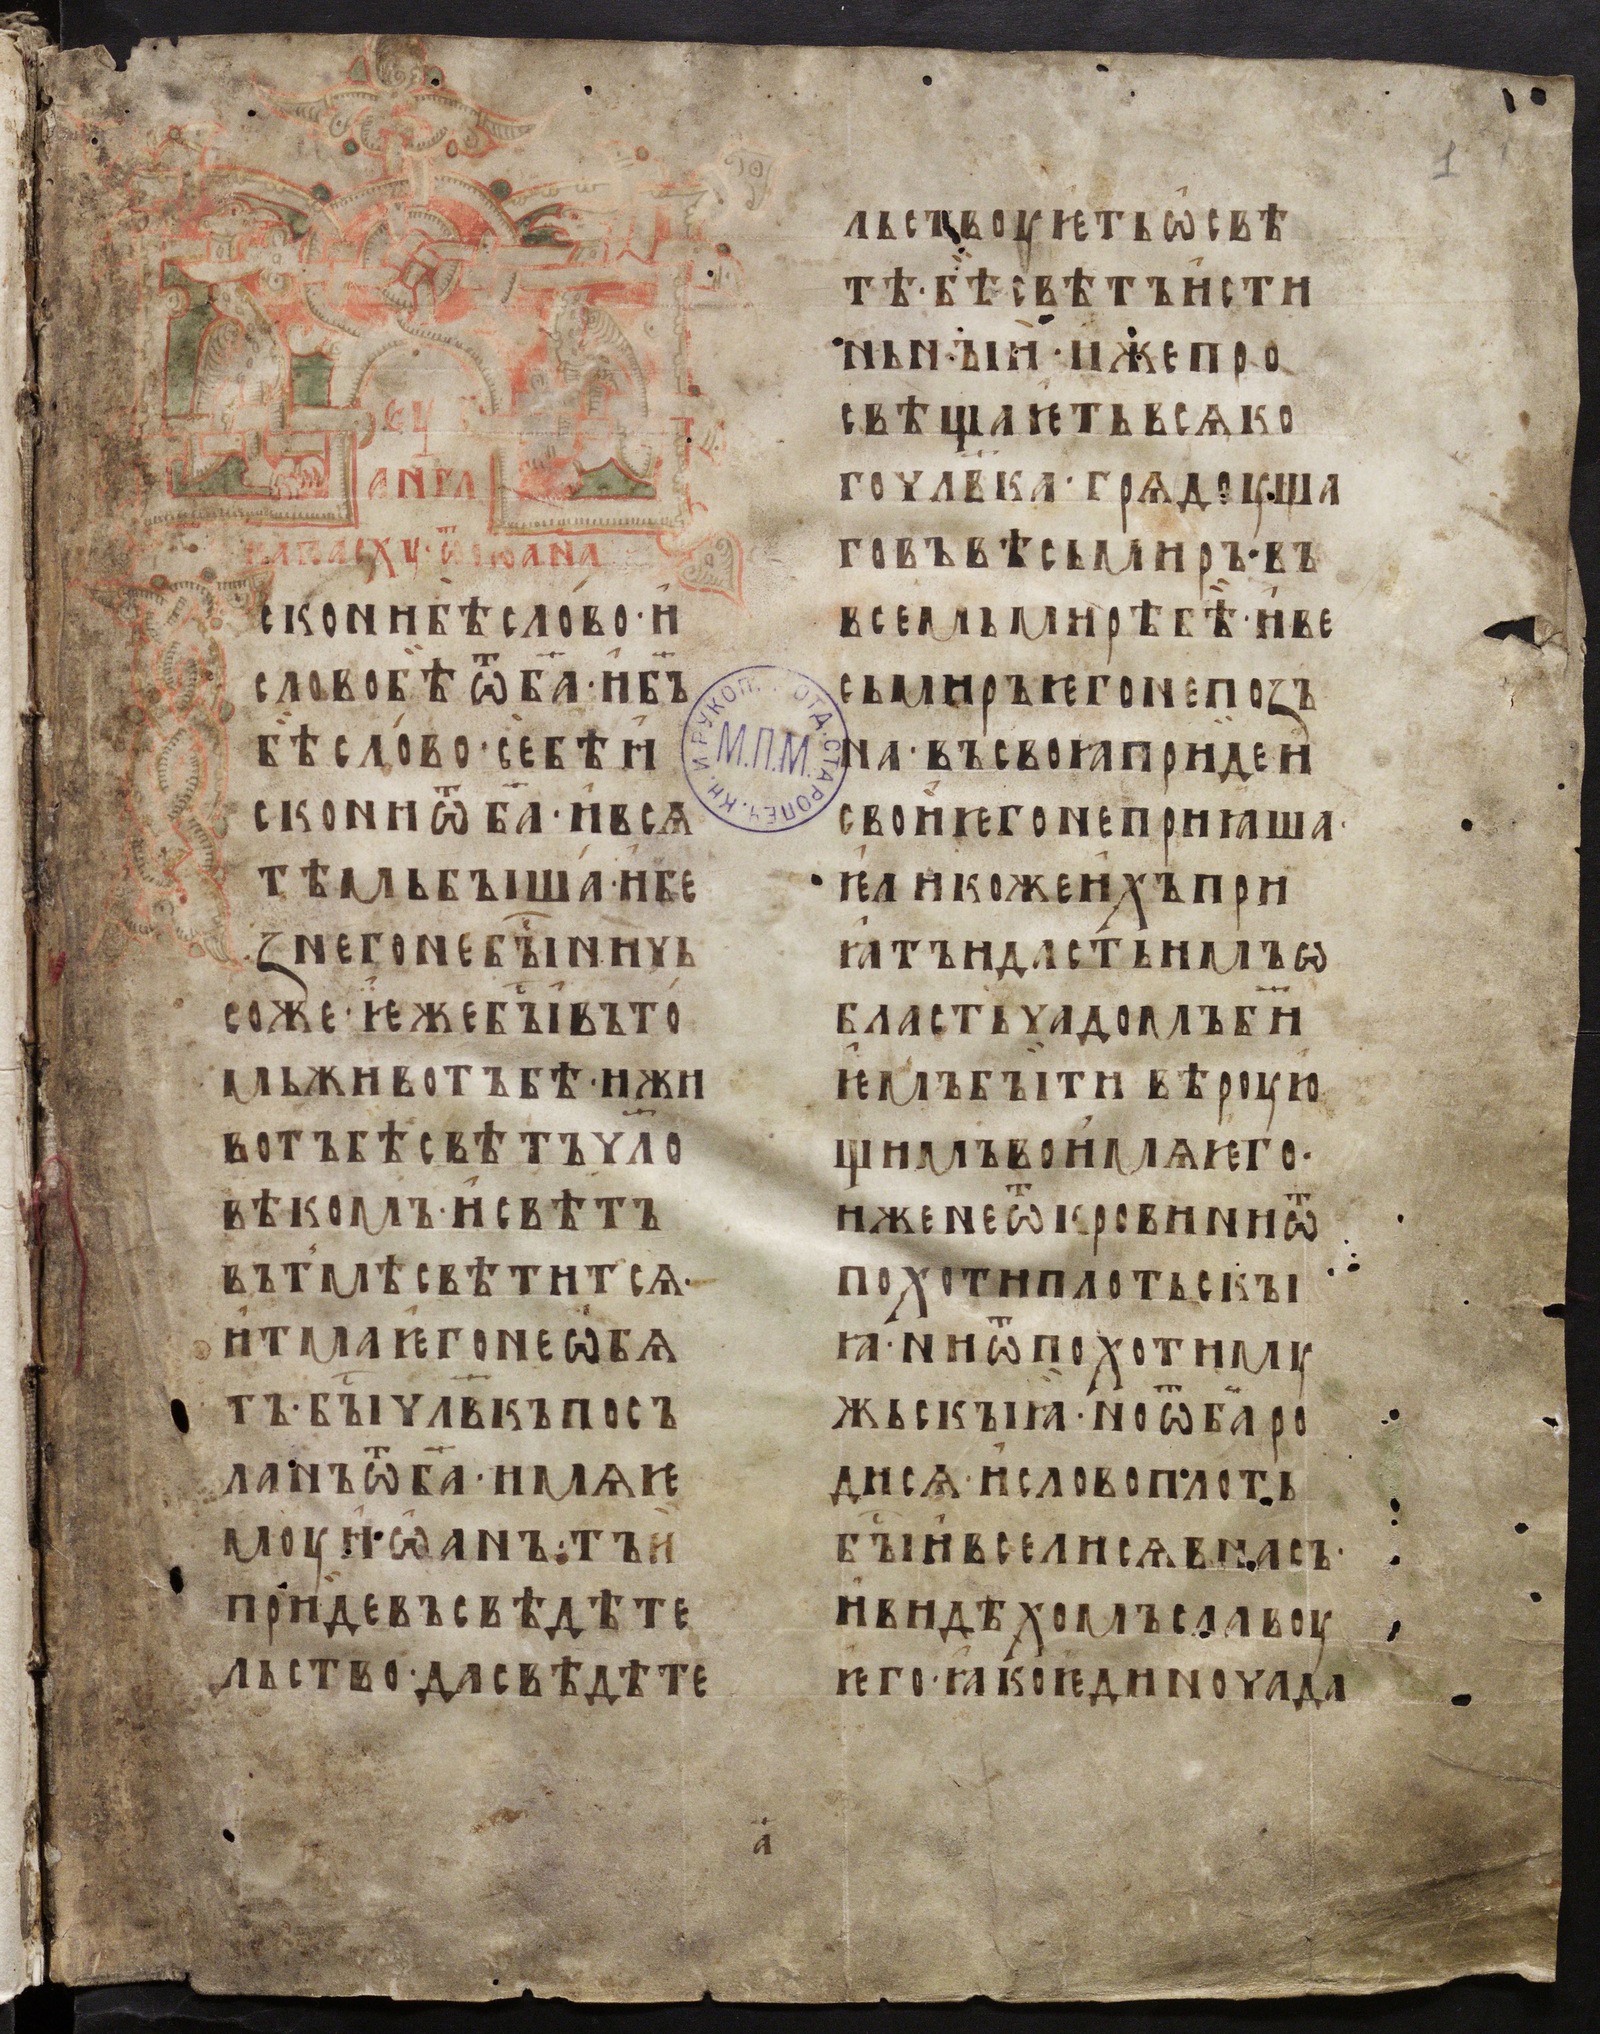 еѵ
англ
на пасху · ѿ иоана
сконибѣслово·и
словобѣѿба·ибъ
бѣслово·себѣи
скониѿба·ивсѧ
тѣмьбꙑша·ибе
ꙁнегонебꙑничь
соже·ѥжебꙑвъто
мьживотъбѣ·ижи
вотъбѣсвѣтъчло
вѣкомъ·исвѣтъ
вътмѣсвѣтитсѧ·
итмаѥгонеѡбѧ
тъ·бꙑчлвкъпосъ
ланъѿба·имѧѥ
моуи·ѡанъ·тъи
придевъсвѣдѣте
льство·дасвѣдѣте
льствоуѥтьѡсвѣ
тѣ·бѣсвѣтъисти
ньнꙑи·ижепро
свѣщаѥтьвсѧко
гочлвка·грѧдоуща
говъвѣсьмиръ·въ
всемьмирѣбѣ·иве
сьмиръѥгонепоꙁъ
на·въсвоꙗпридеи
своиѥгонеприꙗша·
ѥликожеихъпри
ꙗтъидастьимъѡ
бластьчадомъби
ѥмъбꙑти вѣроую
щимъвоимѧѥго·
иженеѿкровиниѿ
похотиплотьскꙑ
ꙗ·ниѿпохотимꙋ
жьскꙑꙗ·ноѿбаро
дисѧ·исловоплоть
бꙑивселисѧвнасъ·
ивидѣхомъславоу
ѥго·ꙗкоѥдиночада
а
1
М.П.М.
ОТД. СТАРОПЕЧ. КН. И РУКОП.